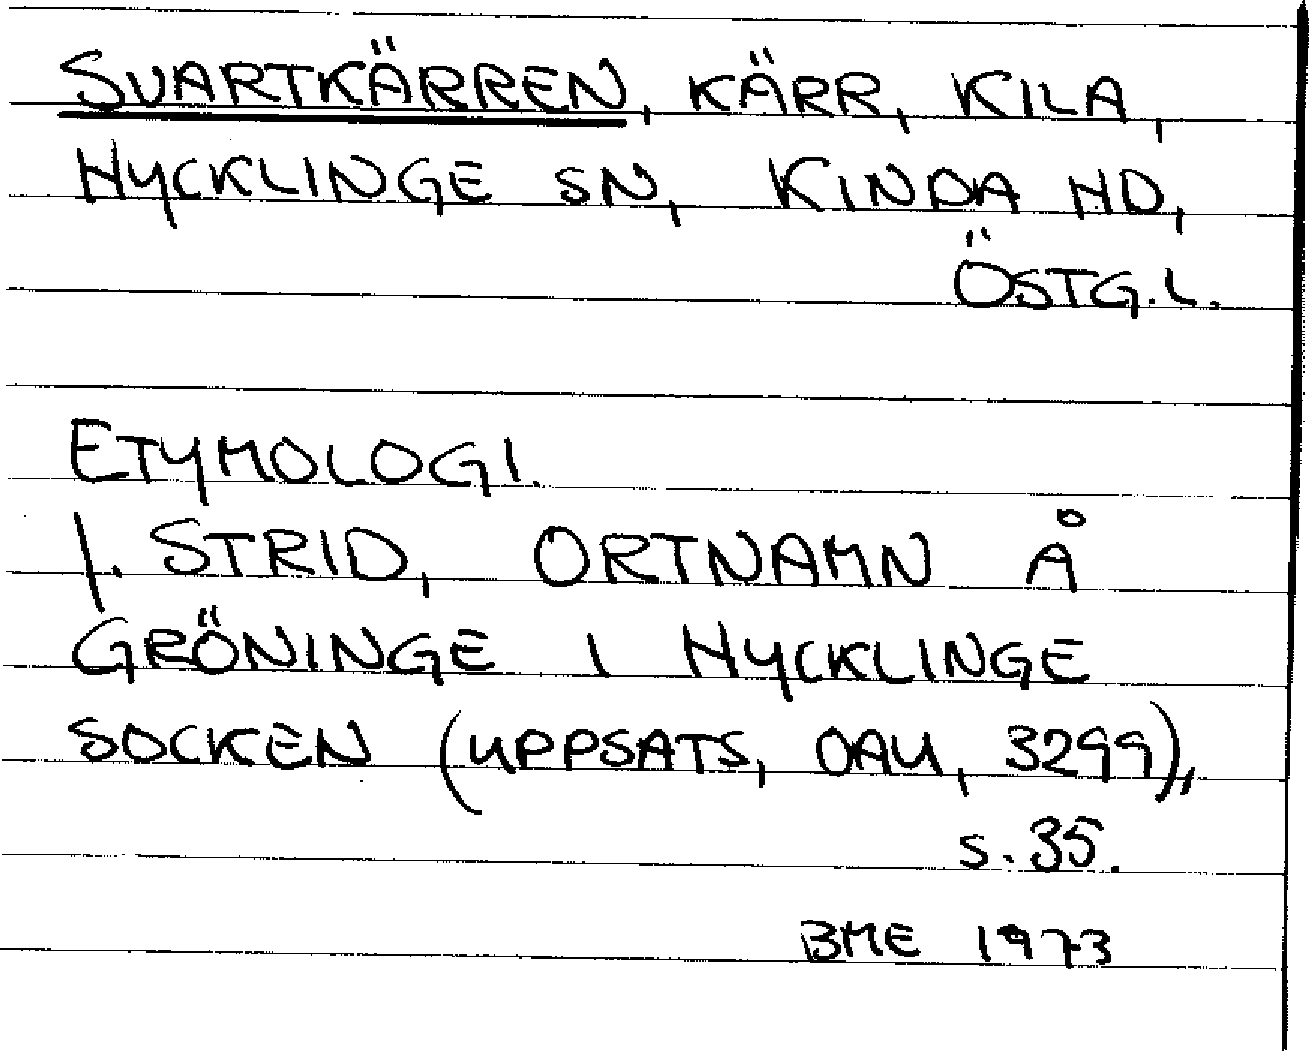 SVARTKÄRREN, KÄRR, KILA,
HYCKLINGE SN, KINDA HD,
ÖSTG.L.
ETYMOLOGI.
J. STRID, ORTNAMN Å
GRÖNINGE I HYCKLINGE
SOCKEN (UPPSATS, OAU, 3299),
s. 35.
BME 1973